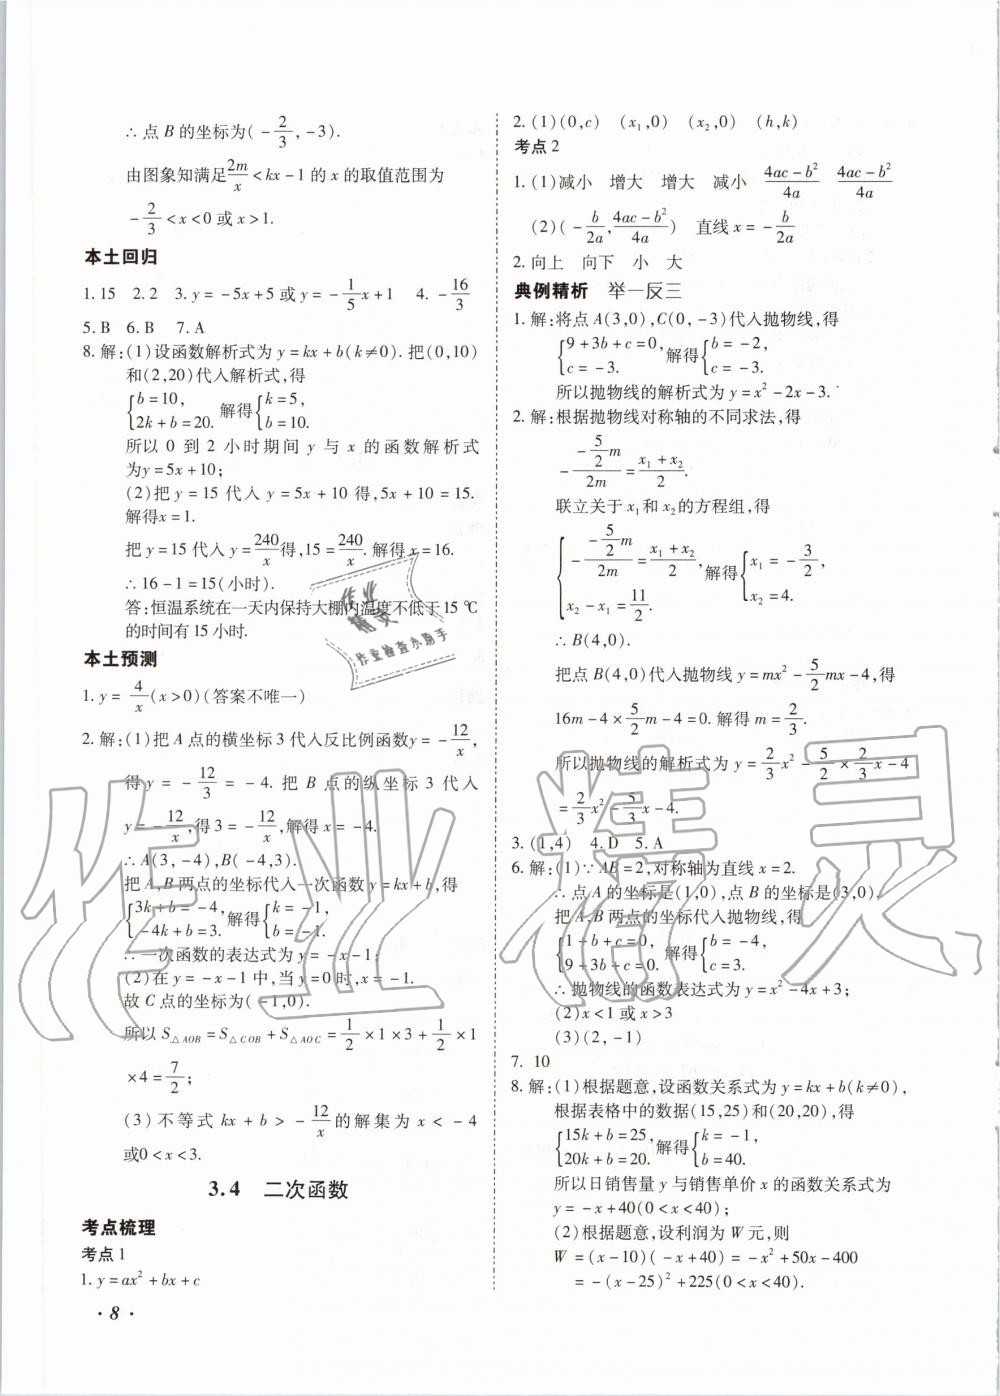 ∴点 B 的坐标为(-2/3,-3).
由图象知满足2m/x<kx-1 的 x 的取值范围为
-2/3<x<0 或 x>1.
本土回归
1.15 2.2 3.y=-5x+5 或 y=-1/5x+1 4.-16/3
5.B 6.B 7.A
8.解:(1)设函数解析式为 y=kx+b(k≠0).把(0,10)
和(2,20)代入解析式,得
{b=10, 2k+b=20. 解得{k=5, b=10.
所以 0 到 2 小时期间 y 与 x 的函数解析式
为y=5x+10;
(2)把 y=15 代入 y=5x+10 得,5x+10=15.
解得x=1.
把 y=15 代入 y=240/x得,15=240/x.解得x=16.
∴16-1=15(小时).
答:恒温系统在一天内保持大棚内温度不低于15 ℃
的时间有 15 小时.
本土预测
1.y=4/x(x>0)(答案不唯一)
2.解:(1)把 A 点的横坐标 3 代入反比例函数y=-12/x,
得 y=-12/3=-4.把 B 点的纵坐标 3 代入
y=-12/x,得3=-12/x,解得x=-4.
∴A(3,-4),B(-4,3).
把 A,B 两点的坐标代入一次函数 y=kx+b,得
{3k+b=-4, -4k+b=3. 解得{k=-1, b=-1.
∴一次函数的表达式为 y=-x-1;
(2)在 y=-x-1 中,当 y=0 时,x=-1.
故 C 点的坐标为(-1,0).
所以 S△AOB=S△COB+S△AOC=1/2×1×3+1/2×1
×4=7/2;
(3)不等式 kx+b>-12/x的解集为 x<-4
或0<x<3.
3.4 二次函数
考点梳理
考点 1
1.y=ax²+bx+c
·8·
2.(1)(0,c) (x₁,0) (x₂,0) (h,k)
考点 2
1.(1)减小 增大 增大 减小 4ac-b²/4a 4ac-b²/4a
(2)(-b/2a,4ac-b²/4a) 直线 x=-b/2a
2.向上 向下 小 大
典例精析 举一反三
1.解:将点 A(3,0),C(0,-3)代入抛物线,得
{9+3b+c=0, c=-3. 解得{b=-2, c=-3.
所以抛物线的解析式为 y=x²-2x-3.
2.解:根据抛物线对称轴的不同求法,得
-(-5/2m)/2m=(x₁+x₂)/2.
联立关于 x₁和 x₂的方程组,得
{-(-5/2m)/2m=(x₁+x₂)/2, x₂-x₁=11/2. 解得{x₁=-3/2, x₂=4.
∴B(4,0).
把点 B(4,0)代入抛物线 y=mx²-5/2mx-4,得
16m-4×5/2m-4=0.解得 m=2/3.
所以抛物线的解析式为 y=2/3x²-5/2×2/3x-4
=2/3x²-5/3x-4.
3.(1,4) 4.D 5.A
6.解:(1)∵AB=2,对称轴为直线 x=2.
∴点 A 的坐标是(1,0),点 B 的坐标是(3,0).
把 A,B 两点的坐标代入抛物线,得
{1+b+c=0, 9+3b+c=0. 解得{b=-4, c=3.
∴抛物线的函数表达式为 y=x²-4x+3;
(2)x<1 或 x>3
(3)(2,-1)
7. 10
8.解:(1)根据题意,设函数关系式为 y=kx+b(k≠0),
根据表格中的数据(15,25)和(20,20),得
{15k+b=25, 20k+b=20. 解得{k=-1, b=40.
所以日销售量 y 与销售单价 x 的函数关系式为
y=-x+40(0<x<40);
(2)根据题意,设利润为 W 元,则
W=(x-10)(-x+40)=-x²+50x-400
=-(x-25)²+225(0<x<40).
作业精灵
作业检查小助手
作业精灵